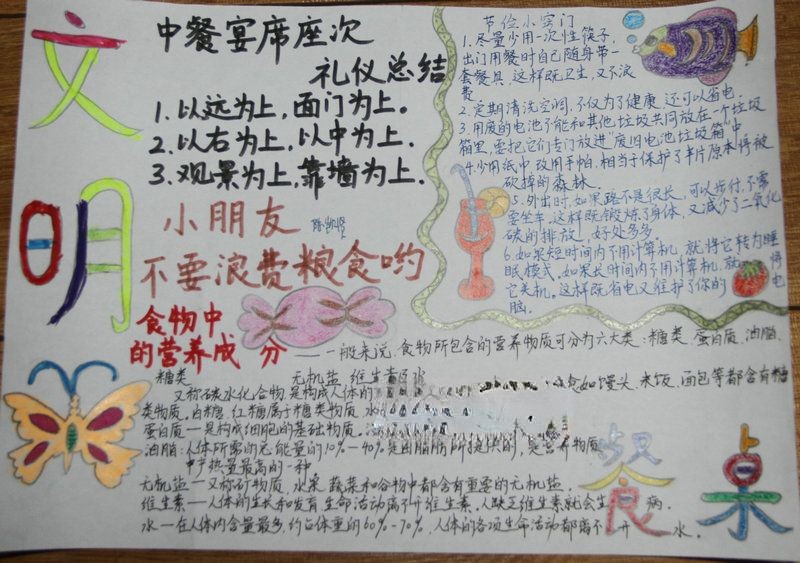 文明
中餐宴席座次
礼仪总结
1.以远为上，面门为上。
2.以右为上，以中为上.
3.观景为上，靠墙为上.
小朋友
不要浪费粮食哟
节俭小窍门
1.尽量少用一次性筷子，
出门用餐时自己随身带一
套餐具，这样既卫生，又不浪
费
2.定期清洗空调，不仅为了健康，还可以省电.
3.用废的电池不能和其他垃圾共同放在一个垃圾
箱里，要把它们专门放进"废旧电池垃圾箱"中
4.少用纸巾，改用手帕，相当于保护了半片原本将被
砍掉的森林.
5.外出时，如果路不是很长，可以步行，不需
要坐车，这样既锻炼了身体，又减少了二氧化
碳的排放，好处多多.
6.如果短时间内不用计算机，就将它转为睡
眠模式，如果长时间内不用计算机，就将
它关机。这样既省电又维护了你的电
脑.
食物中
的营养成分
——一般来说，食物所包含的营养物质可分为六大类：糖类、蛋白质、油脂、
糖类 无机盐 维生素 水
又称碳水化合物是构成人体的 如馒头、米饭、面包等都含有糖
类物质。白糖，红糖属于糖类物质
蛋白质—是构成细胞的基础物质。
油脂：人体所需的总能量的10%—40%是由脂肪所提供的，是营养物质
中产热量最高的一种
无机盐—又称矿物质，水果、蔬菜和谷物中都含有重要的无机盐.
维生素—人体的生长和发育，生命活动离不开维生素。人缺乏维生素就会生病.
水—在人体内含量最多，约占体重的60%-70%，人体的各项生命活动都离不开水。
餐桌